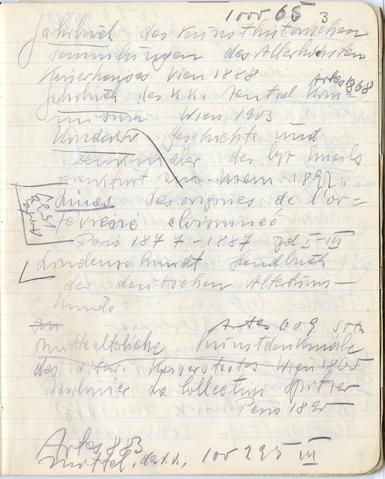 100 S 65 3
Jahrbuch des Kunsthistorischen
Sammlungen des Allerhöchsten
Kaiserhauses Wien 1888
Artes 868
Jahrbuch des K.K. Zentral Kom-
mission Wien 1903
Kondakov Geschichte und
Denkmäler des byz. Emails
Frankfurt am Main 1892.
Linas des origines de l'or-
fevrerie cloisonneé
Paris 1877 - 1887 I-III
Lindenschmidt Handbuch
der deutschen Altertums-
kunde
Artes 609
mittelalterliche Kunstdenkmale
des Österr. Kaiserstaates Wien 1865
La Collection Spitzer
Paris 1890
Artes 853
Mitteil. der K.K. 100 295 III